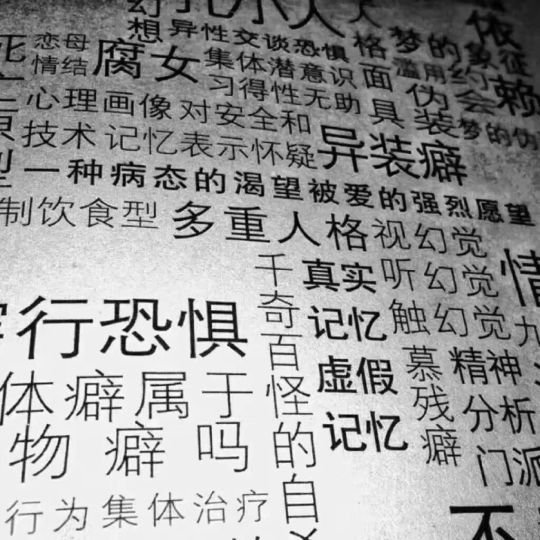 幻
孔小人
想 异性交谈恐惧
格
梦的象征
依
赖
恋母
情结
腐女
集体潜意识
习得性无助
面
具
滥用
伪
装
约
会
梦的伪
心理画像
对安全和
技术
记忆表示怀疑
异装癖
一种病态的渴望被爱的强烈愿望
制饮食型
多重人格
视幻觉
听幻觉
触幻觉
千
奇
百
怪
的
自
真实
记忆
虚假
记忆
慕
残
癖
精神
分析
门派
情
九
行恐惧
体癖属于
物癖吗
行为集体治疗
不